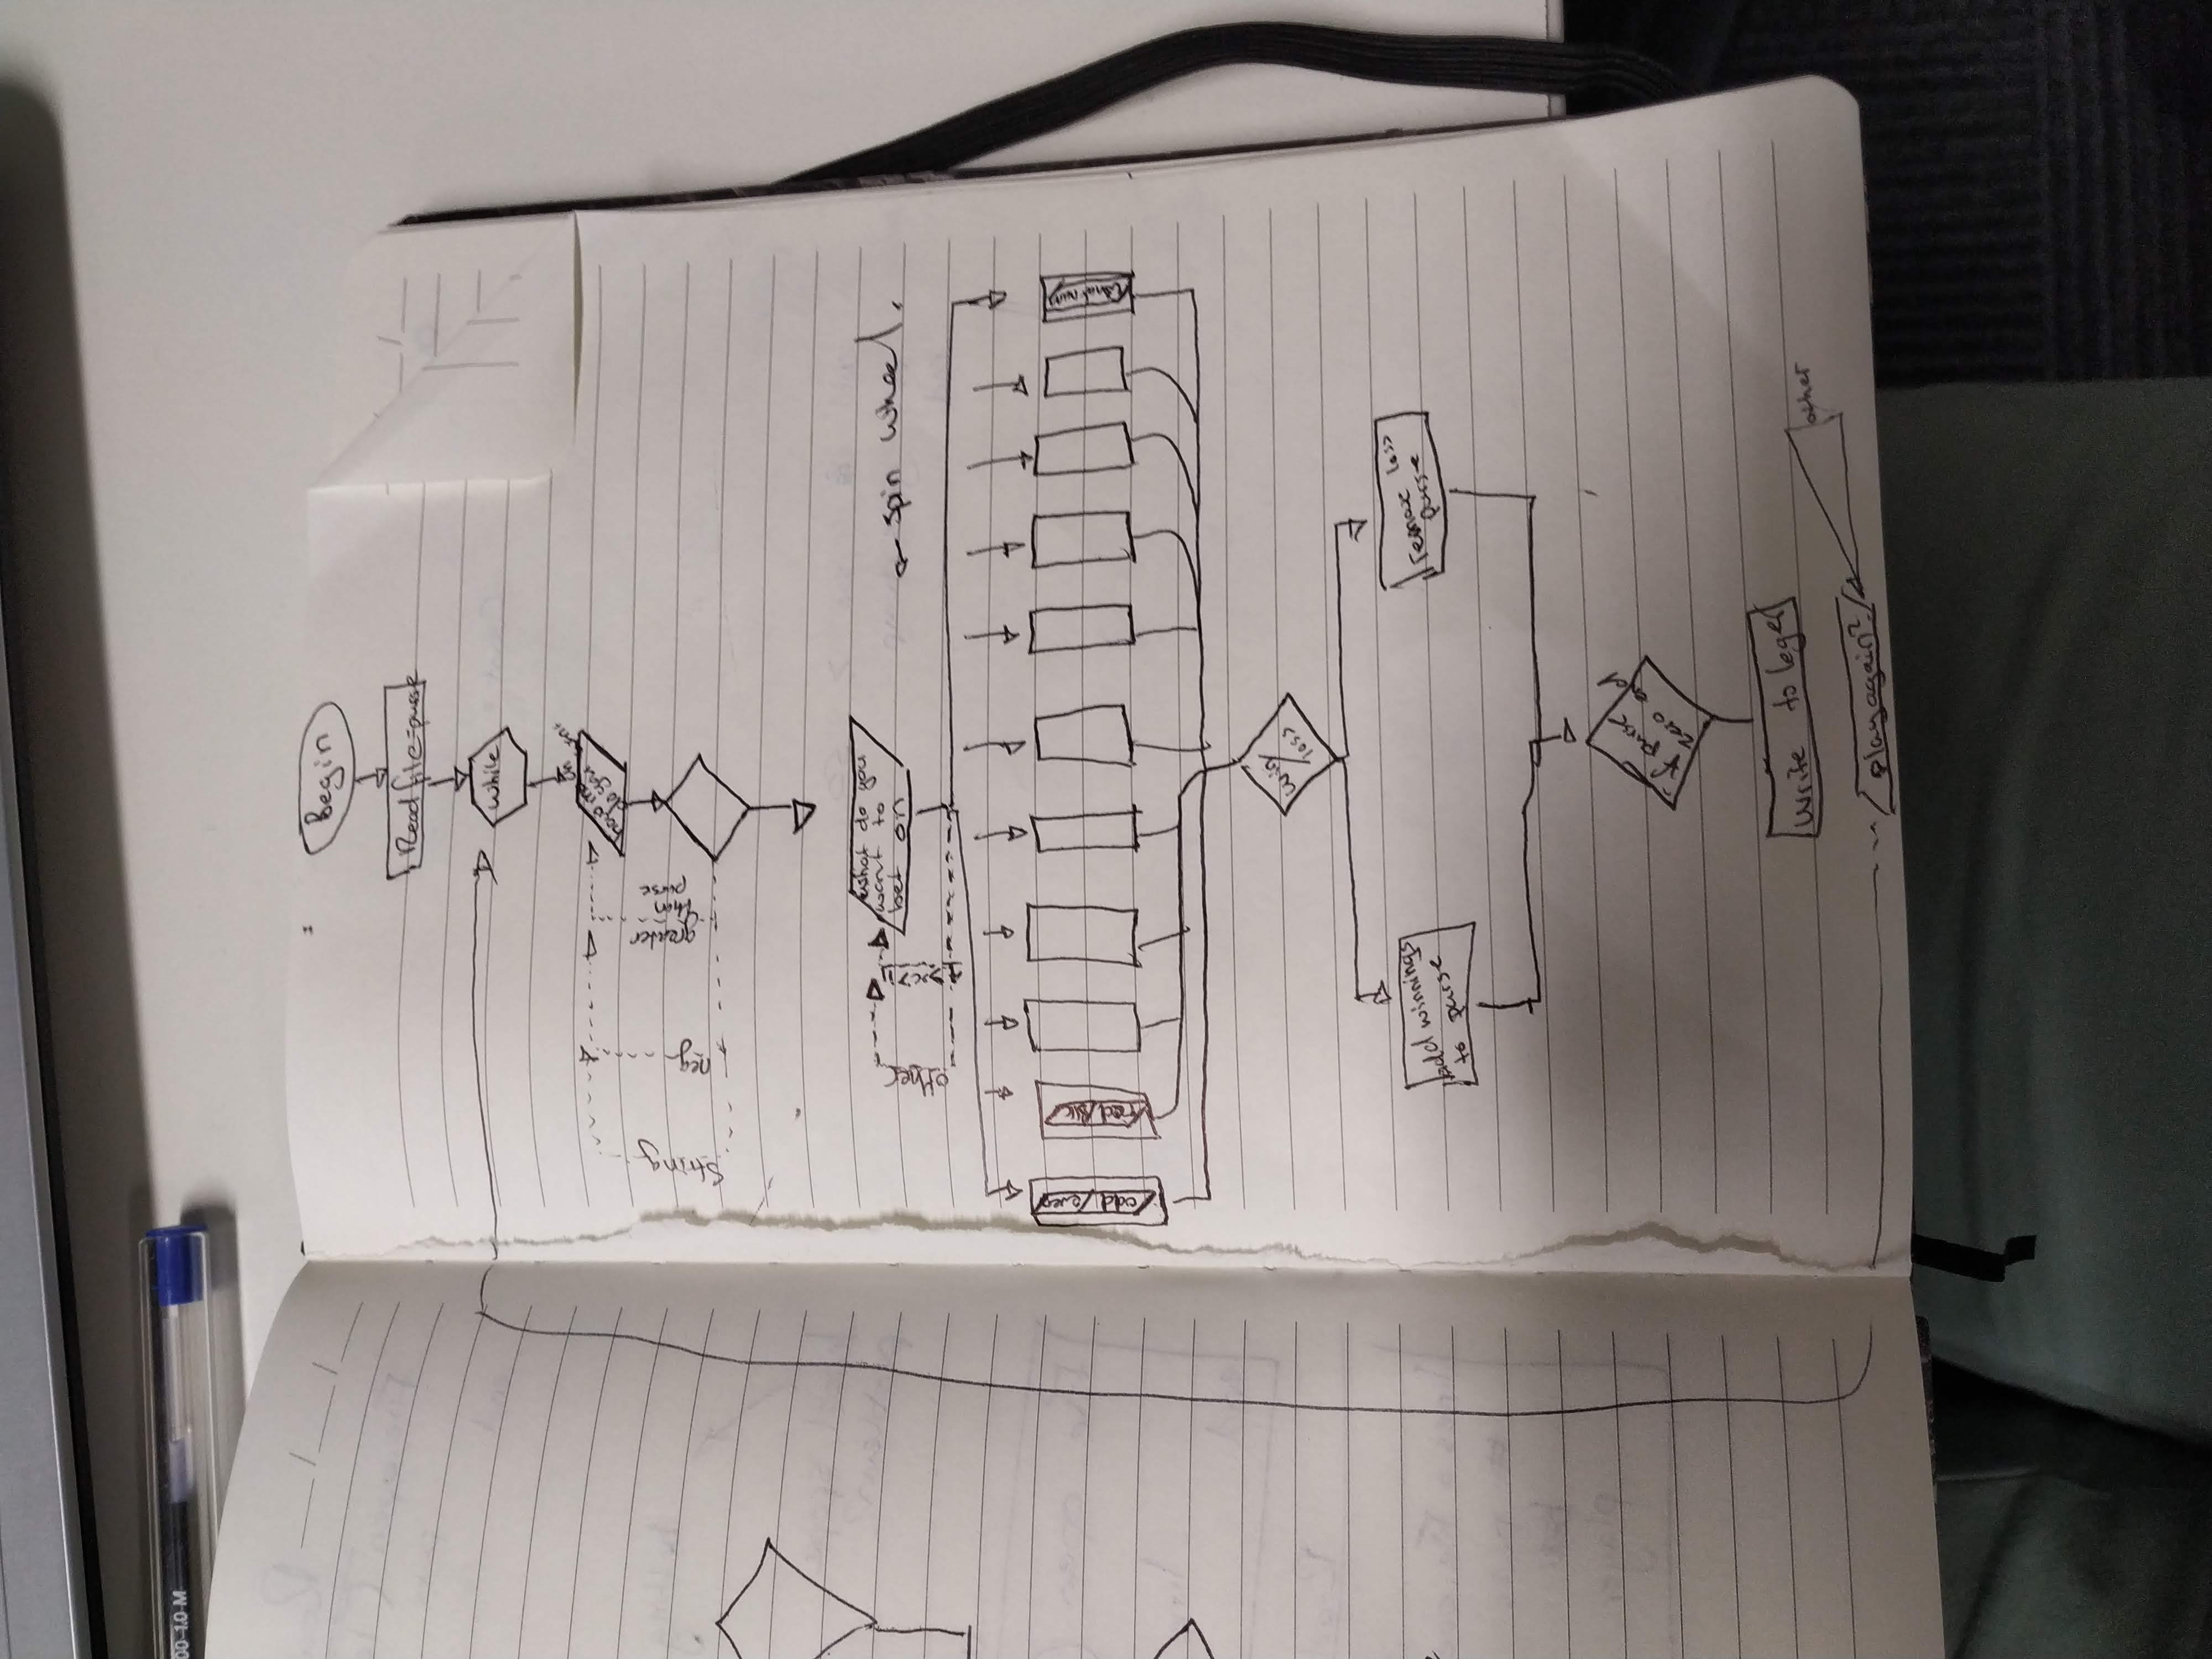 00 1.0 M
Begin
Read file = purse
while
how much
do you
String
neg
greater
than
purse
what do you
want to
bet on
other
spin wheel.
odd/even
red/blk
win/
loss
add winnings
to purse
remove loss
purse
if purse
zero end
write to leger
other
play again?